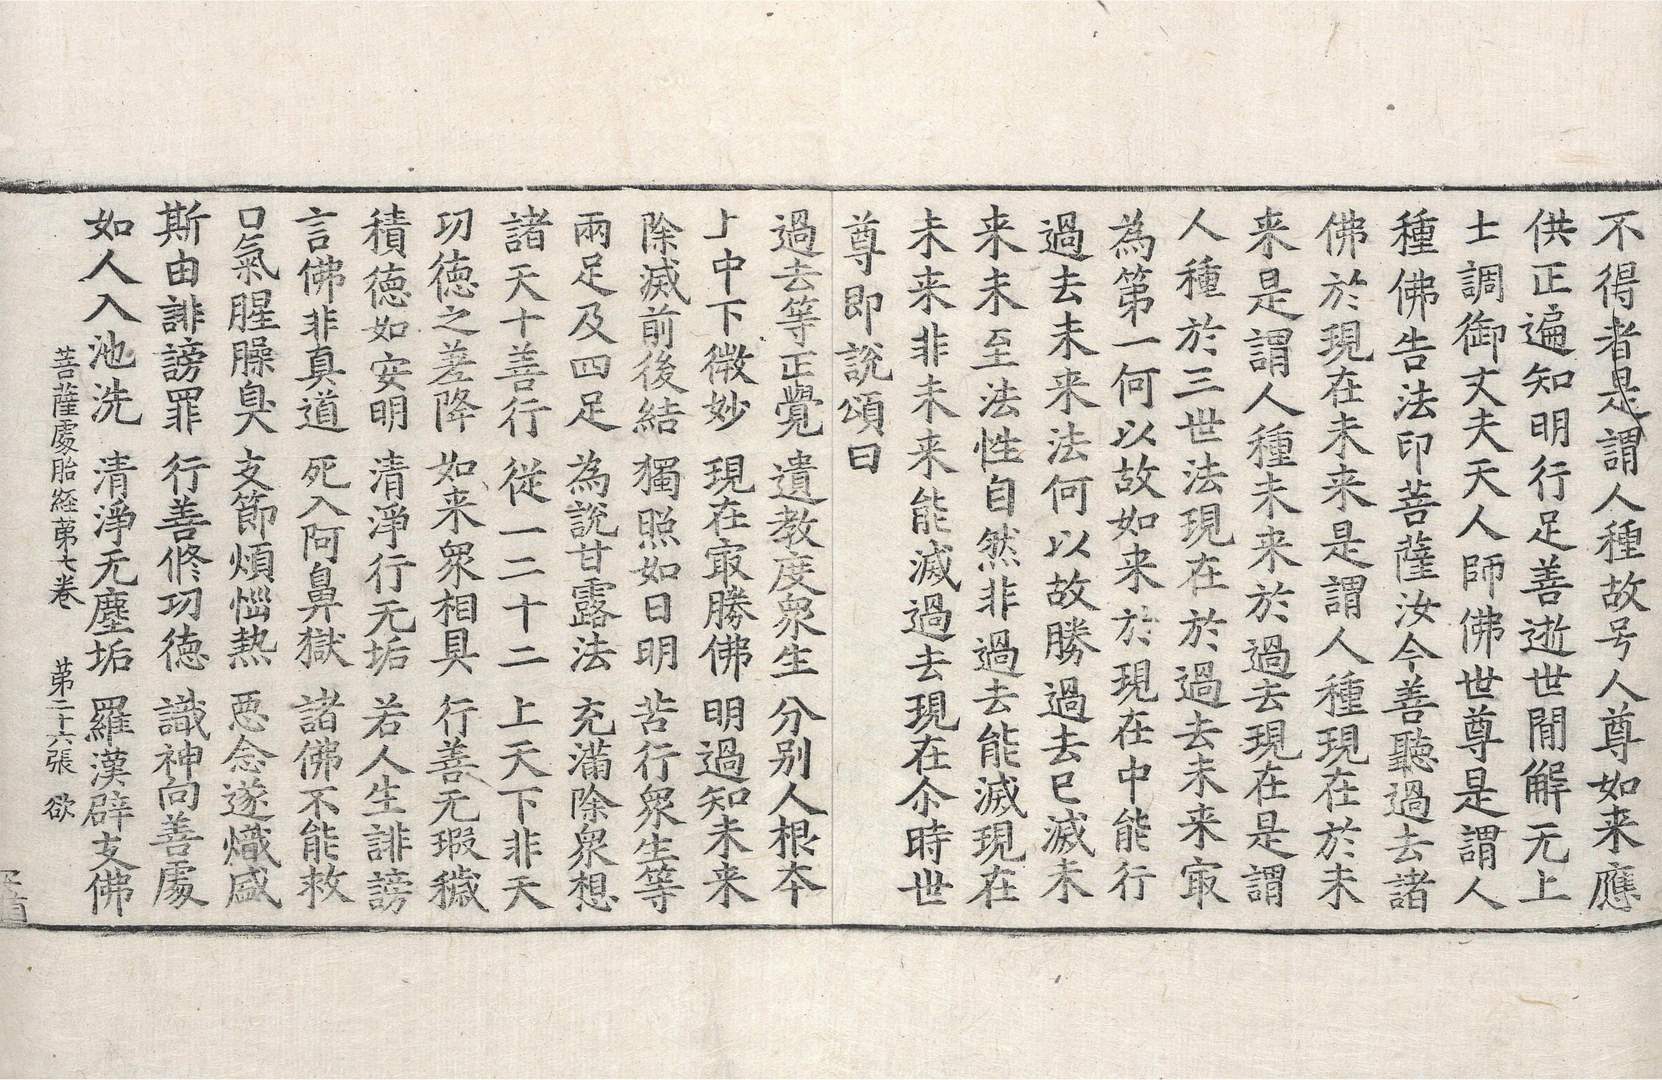 不得者是謂人種故号人尊如来應
供正遍知明行足善逝世間解无上
士調御丈夫天人師佛世尊是謂人
種佛告法印菩薩汝今善聽過去諸
佛於現在未来是謂人種現在於未
来是謂人種未来於過去現在是謂
人種於三世法現在於過去未来冣
為第一何以故如来於現在中能行
過去未来法何以故勝過去已滅未
来未至法性自然非過去能滅現在
未来非未来能滅過去現在尒時世
尊即說頌曰
過去等正覺 遺教度衆生 分别人根夲
上中下微妙 現在冣勝佛 明過知未来
除滅前後結 獨照如日明 苦行衆生等
兩足及四足 為說甘露法 充滿除衆想
諸天十善行 從一二十二 上天下非天
功德之差降 如来衆相具 行善无瑕穢
積德如安明 清淨行无垢 若人生誹謗
言佛非真道 死入阿鼻獄 諸佛不能救
口氣腥臊臭 支節煩惱熱 惡念遂熾盛
斯由誹謗罪 行善修功德 識神向善處
如人入池洗 清淨无塵垢 羅漢辟支佛
菩薩處胎經苐七卷 苐二十六張 欲